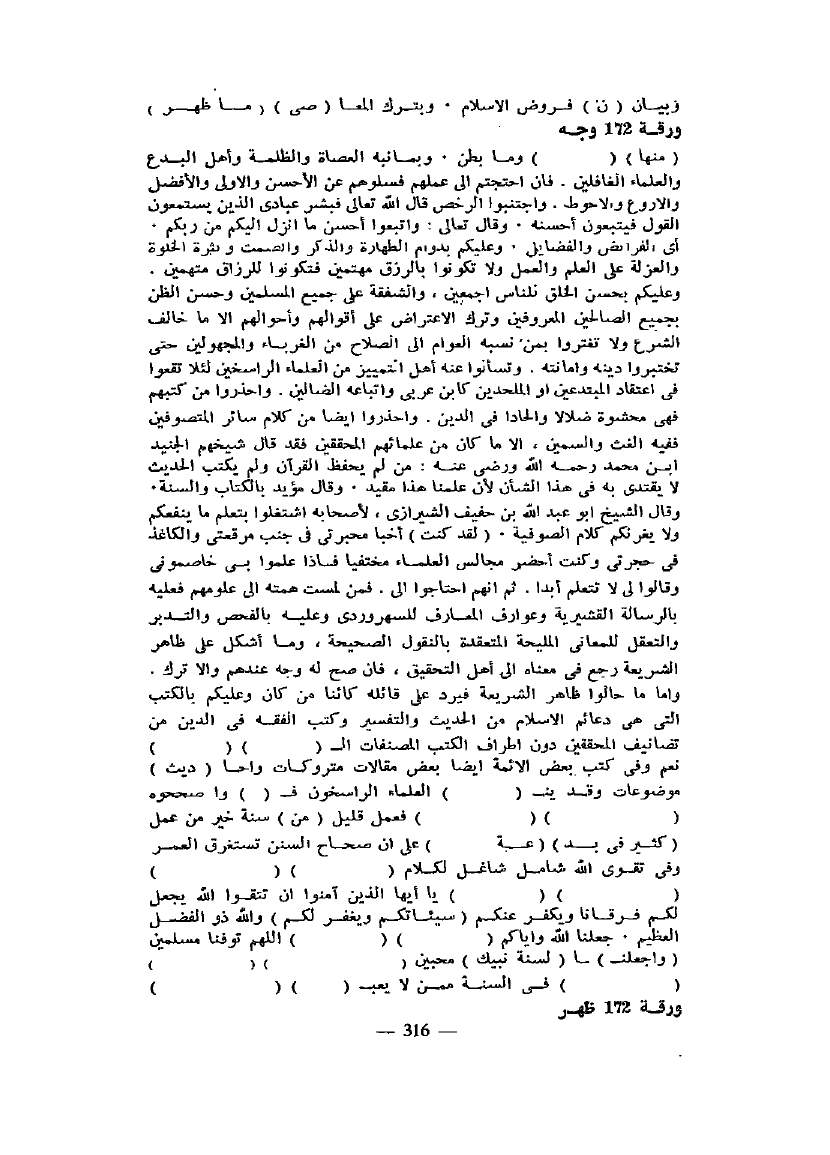 وبيـان ( ن ) فـروض الاسلام ٠ وبتـرك المعـا ( صى ) ( مـا ظهـر )
ورقـة 172 وجـه
( منها ) ( ) وما بطن ٠ وبمـانبة العصاة والظلمـة وأهل البـدع
والعلماء الغافلين . فان احتجتم الى عملهم فسلوهم عن الأحسن والاولى والأفضل
والاروع والاحوط . واجتنبوا الرخص قال الله تعالى فبشر عبادى الذين يستمعون
القول فيتبعون أحسنه ٠ وقال تعالى : واتبعوا أحسن ما انزل اليكم من ربكم ٠
أى الفرائض والفضايل ٠ وعليكم بدوام الطهارة والذكر والصمت و نثرة الخلوة
والعزلة على العلم والعمل ولا تكونوا بالرزق مهتمين فتكونوا للرزاق متهمين .
وعليكم بحسن الخلق للناس اجمعين ، والشفقة على جميع المسلمين وحسن الظن
بجميع الصالحين المعروفين وترك الاعتراض على أقوالهم وأحوالهم الا ما خالف
الشرع ولا تغتروا بمن نسبه العوام الى الصلاح من الغربـاء والمجهولين حتى
تختبروا دينه وامانته . وتسألوا عنه أهل التمييز من العلماء الراسخين لئلا تقعوا
فى اعتقاد المبتدعين او الملحدين كابن عربى واتباعه الضالين . واحذروا من كتبهم
فهى محشوة ضلالا والحادا فى الدين . واحذروا ايضا من كلام سائر المتصوفين
ففيه الغث والسمين ، الا ما كان من علمائهم المحققين فقد قال شيخهم الجنيد
ابـن محمد رحمـه الله ورضى عنـه : من لم يحفظ القرآن ولم يكتب الحديث
لا يقتدى به فى هذا الشأن لأن علمنا هذا مقيد ٠ وقال مؤيد بالكتاب والسنة٠
وقال الشيخ ابو عبد الله بن حفيف الشيرازى ، لأصحابه اشتغلوا بتعلم ما ينفعكم
ولا يغرنكم كلام الصوفية ٠ ( لقد كنت ) أخبا محبرتى فى جنب مرقعتى والكاغذ
فى حجرتى وكنت أحضر مجالس العلمـاء مختفيا فـاذا علموا بـى خاصمونى
وقالوا لى لا تتعلم أبدا . ثم انهم احتاجوا الى . فمن لمست همته الى علومهم فعليه
بالرسالة القشيرية وعوارف المعـارف للسهروردى وعليـه بالفحص والتـدبر
والتعقل للمعانى المليحة المتعقدة بالنقول الصحيحة ، ومـا أشكل على ظاهر
الشريعة رجع فى معناه الى أهل التحقيق ، فان صح له وجه عندهم والا ترك .
واما ما خالوا ظاهر الشريعة فيرد على قائله كائنا من كان وعليكم بالكتب
التى هى دعائم الاسلام من الحديث والتفسير وكتب الفقـه فى الدين من
تصانيف المحققين دون اطراف الكتب المصنفات الـ ( ) ( )
نعم وفى كتب بعض الائمة ايضا بعض مقالات متروكـات واحـا ( ديث )
موضوعات وقـد ينـ ( ) العلماء الراسخون فـ ( ) وا صححوه
( ) ( ) فعمل قليل ( من ) سنة خير من عمل
( كثـير فى بـد ) ( عـة ) على ان صحـاح السنن تستغرق العمـر
وفى تقـوى الله شامـل شاغـل لكـلام ( ) ( )
( ) ( ) يا أيها الذين آمنوا ان تتقـوا الله يجعل
لكـم فـرقـانا ويكفـر عنكـم ( سيئـاتكـم ويغفـر لكـم ) والله ذو الفضـل
العظيم ٠ جعلنا الله واياكم ( ) ( ) اللهم توفنا مسلمين
( واجعلنـ ) ـا ( لسنة نبيك ) محبين ( ) ( )
( ) فـى السنـة ممـن لا يعبـ ( ) ( )
ورقـة 172 ظهـر
— 316 —